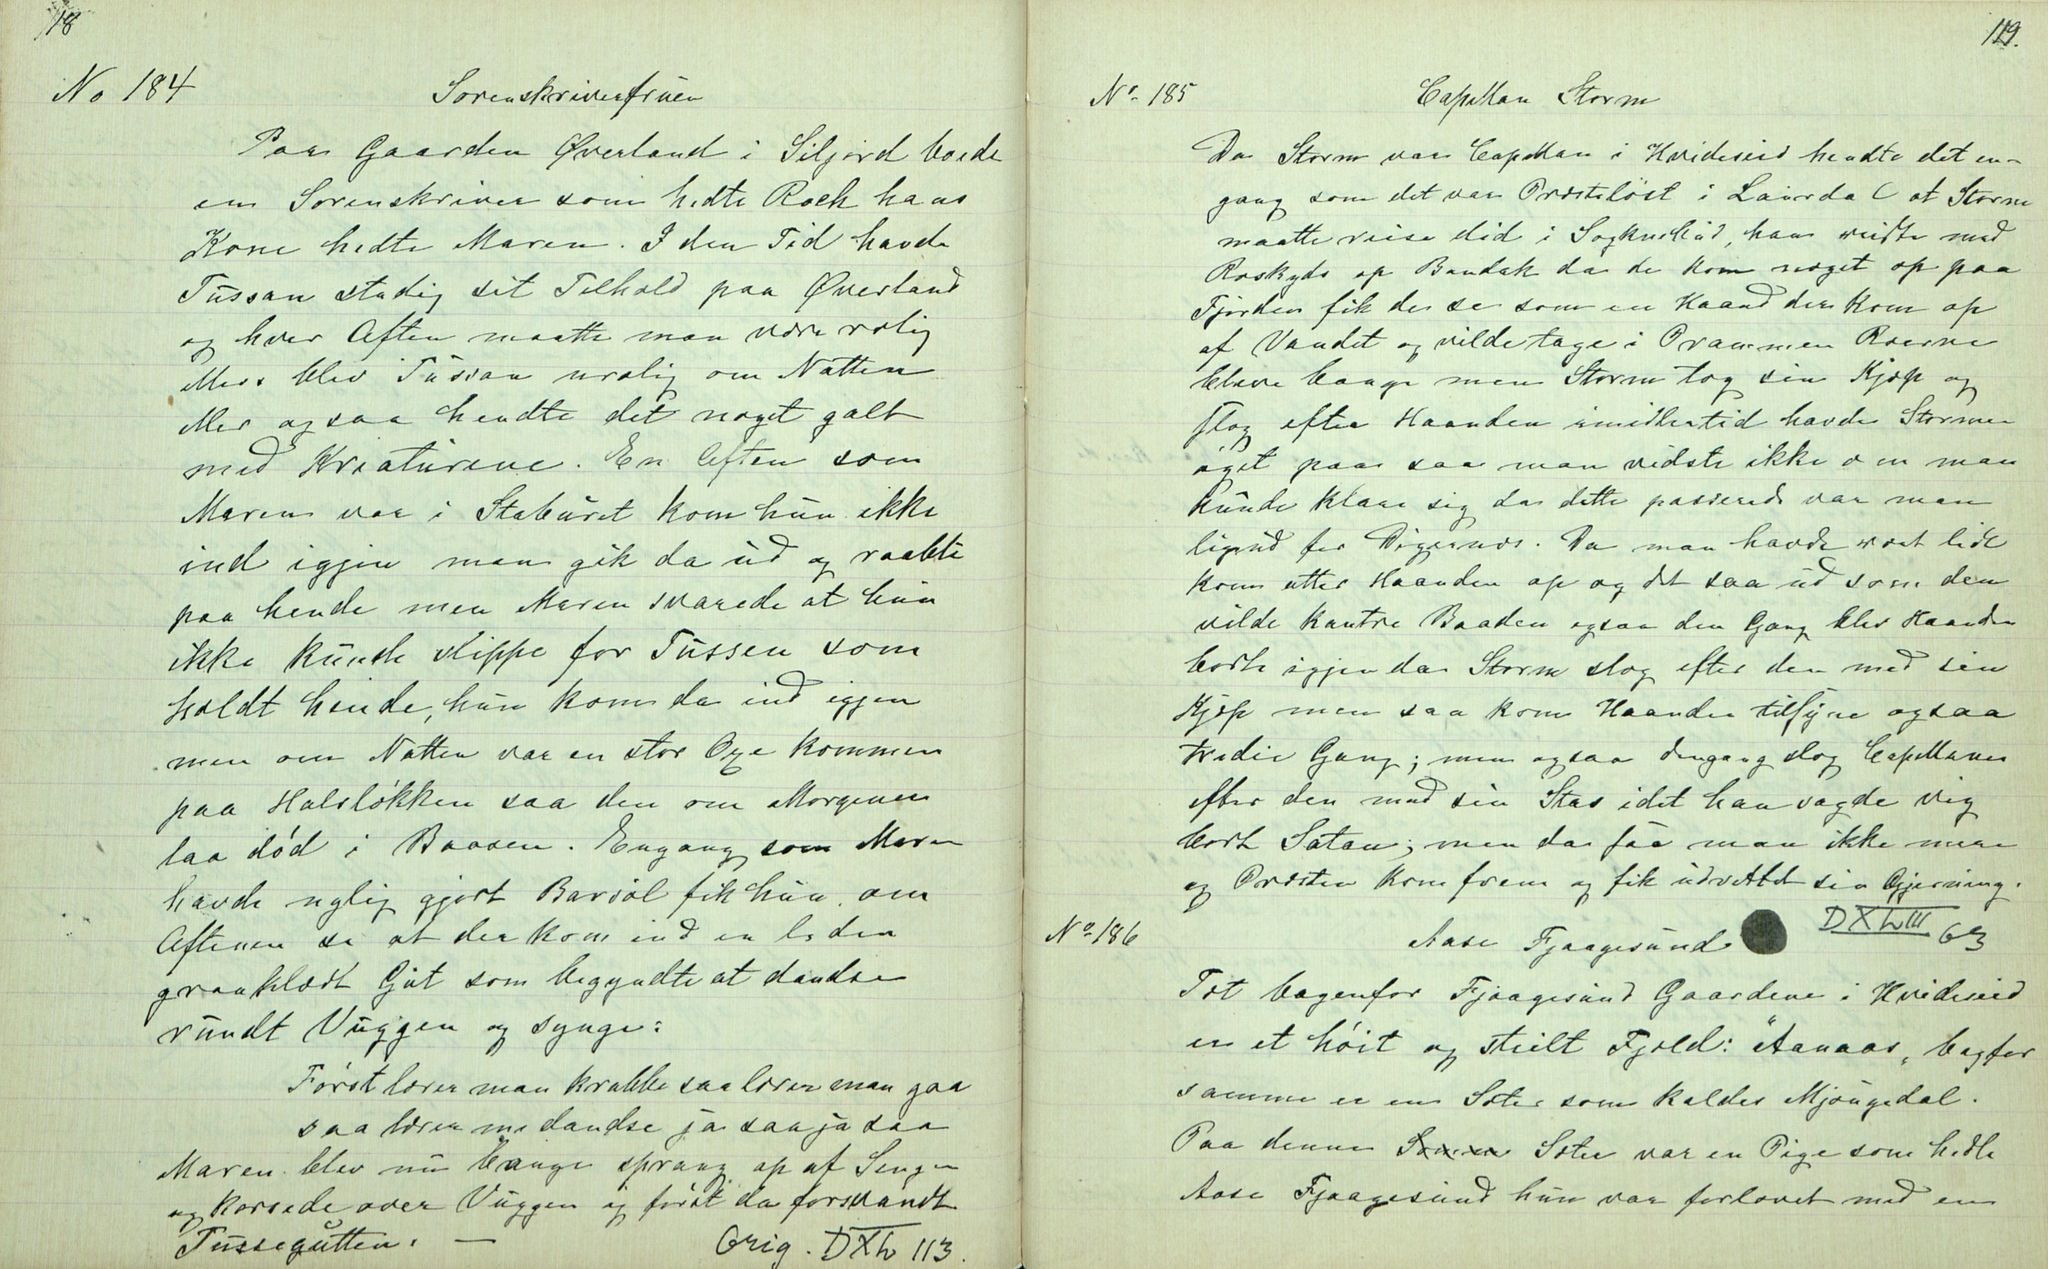 18
No 184
Sorenskriverfruen
Paa Gaarden Øverland i Siljord boede
en Sorenskriver som hedte Roch hans
Kone hedte Maren. I den Tid havde
Tussan stadig sit Tilhold paa Øverland
og hver Aften maatte man være rolig
Mess blev Tussan urolig om Natten
Mer ogsaa hendte det noget galt
med Kreaturene. En Aften som
Maren var i Staburet kom hun ikke
ind igjen man gik da ud og raabte
paa hende men Maren svarede at hun
ikke kunde slippe for Tussen som
holdt hende, hun kom da ind igjen
men om Natten var en stor Oxe kommen
paa Halsløkken saa den om Morgenen
laa død i Baasen. Engang som Maren
havde nylig gjort Barsøl fik hun om
Aftenen se at der kom ind en liden
graaklædt Gut som begyndte at dandse
rundt Vuggen og synge:
Først lærer man krabbe saa lærer man gaa
saa lærer me dandse ja saa ja saa
Maren blev nu bange sprang op af Sengen
og korsede over Vuggen og først da forsvandt
Tussegutten. —
Orig. DXL 113.
119.
No 185
Capellan Storm
Da Storm var Capellan i Hvideseid hendte det en-
gang som det var Presteløst i Laurdal at Storm
maatte reise did i Sognebud, han reiste med
Roskyds op Bandak da de kom noget op paa
Fjorden fik de se som en Haand der kom op
af Vandet og vilde tage i Prammen Roerne
bleve bange men Storm tog sin Kjæp og
slog efter Haanden imidlertid havde Stormen
øget paa saa man vidste ikke om man
kunde klare sig da dette passerede var man
ligeud for Digernes. Da man havde roet lidt
kom atter Haanden op og det saa ud som den
vilde kantre Baaden ogsaa den Gang blev Haanden
borte igjen da Storm slog efter den med sin
Kjæp men saa kom Haanden tilsyne ogsaa
tredie Gang; men ogsaa dengang slog Capellanen
efter den med sin Stav idet han sagde vig
bort Satan; men da saa man ikke mere
og Presten kom frem og fik udrettet sin Gjerning.
DXLIII 63
No 186
Aase Fjaagesund
Tæt bagenfor Fjaagesund Gaardene i Hvideseid
er et høit og steilt Fjeld: "Aanaas, bagfor
samme er en Sæter som kaldes Mjøugedal.
Paa denne Sæter var en Pige som hedte
Aase Fjaagesund hun var forlovet med en